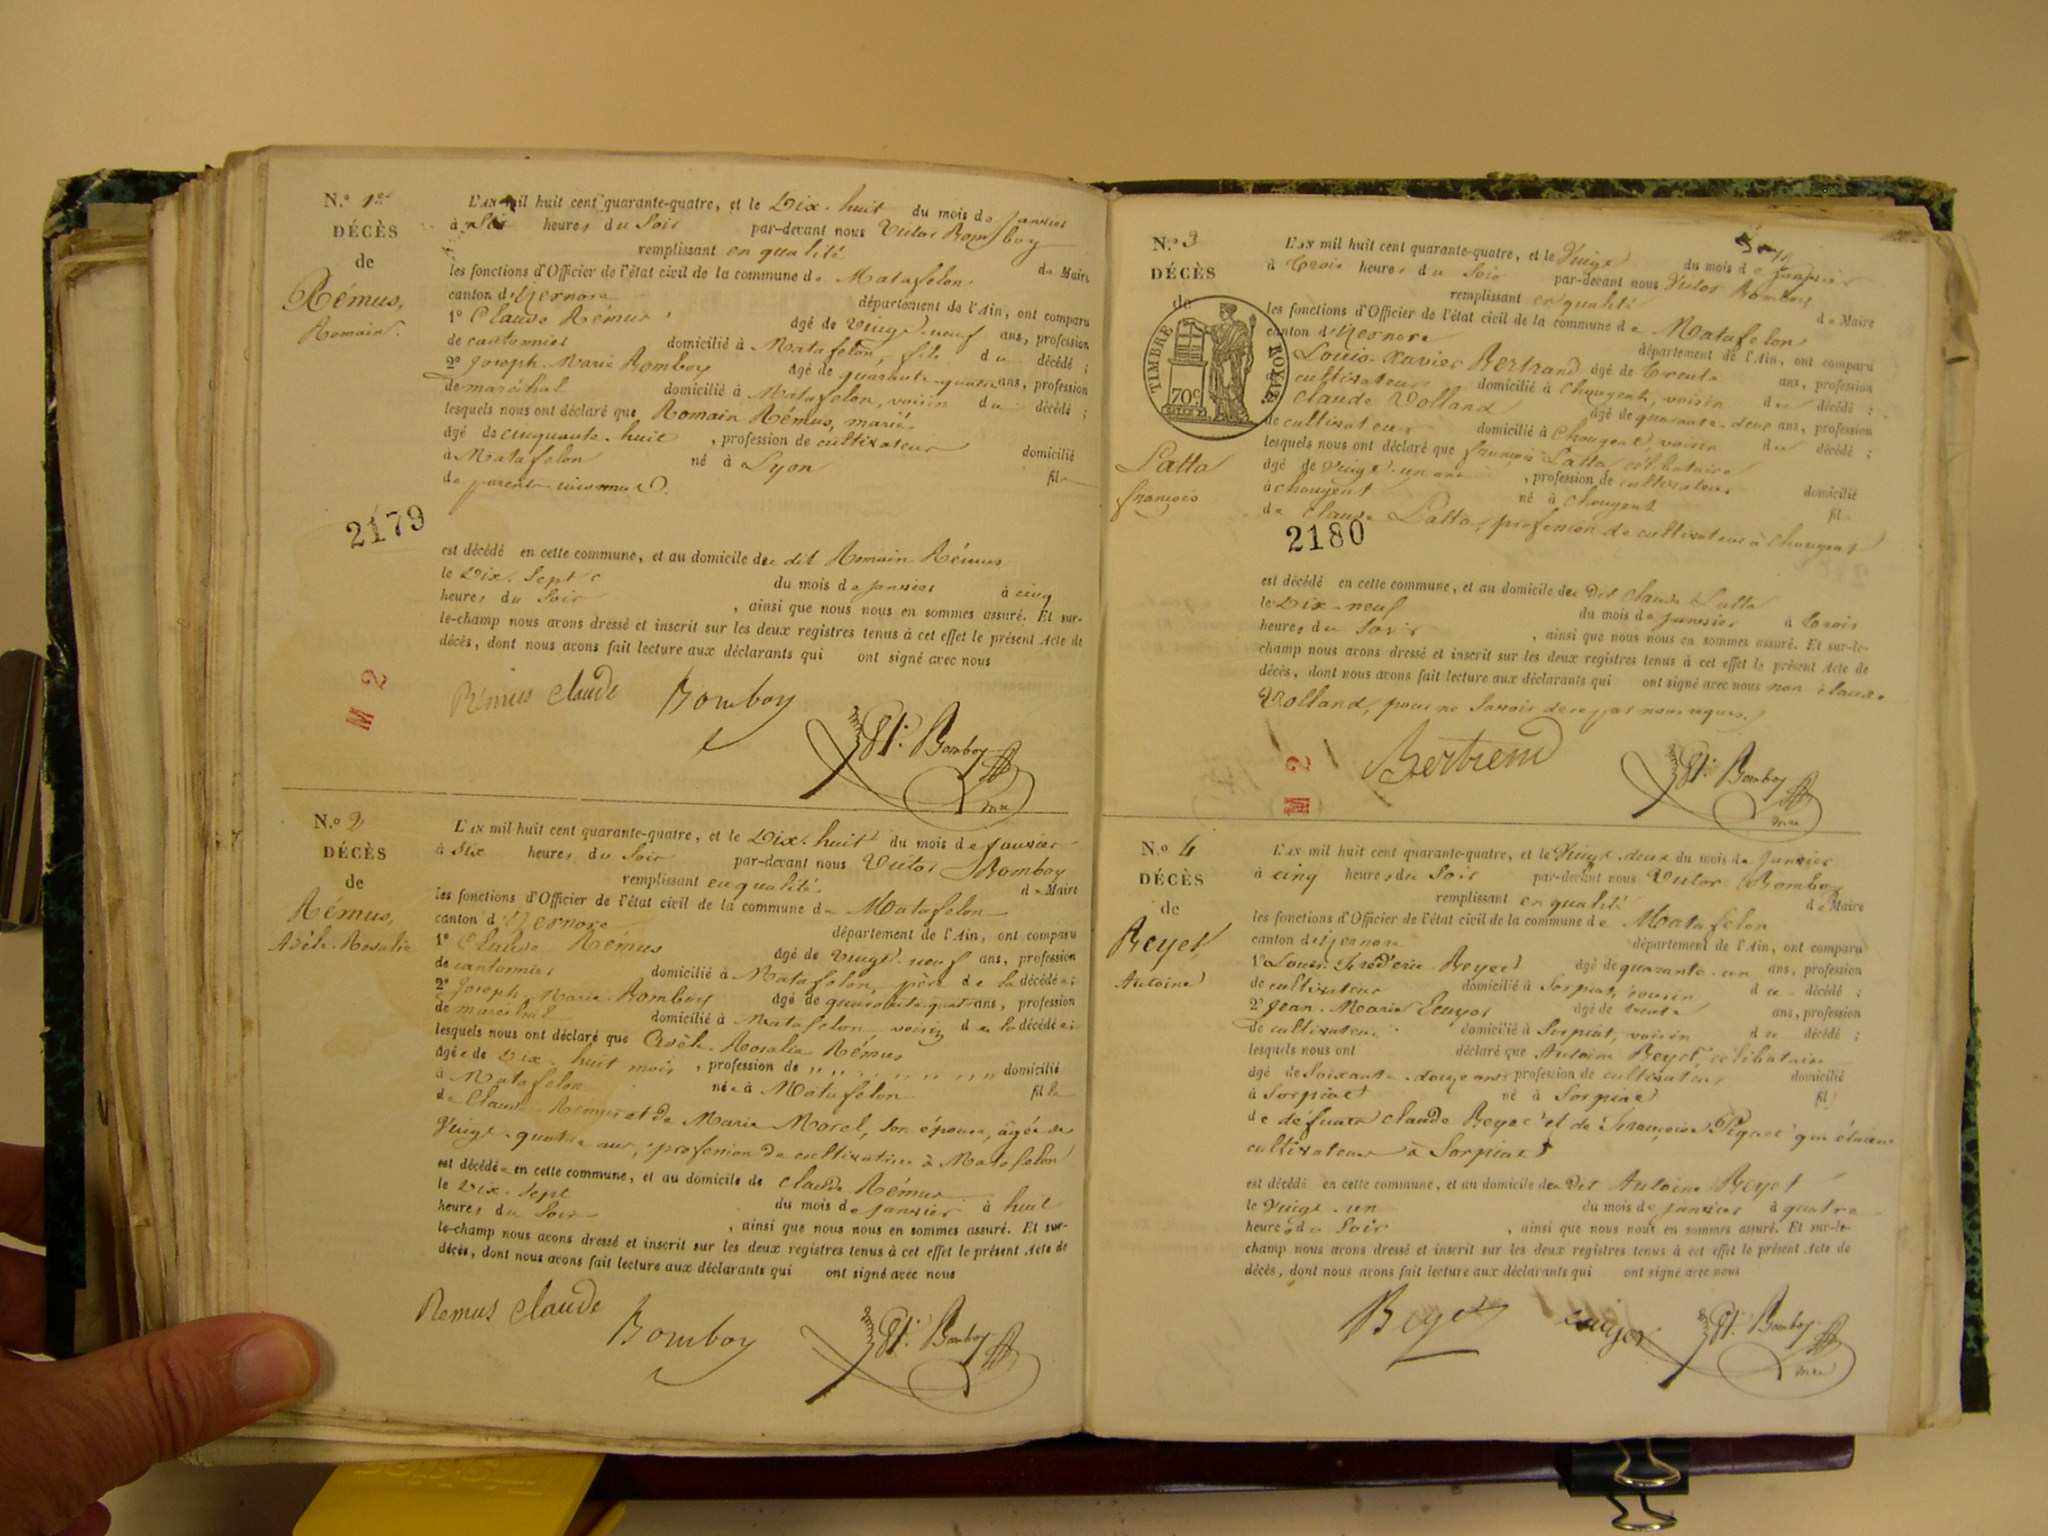 N.o 1er
DÉCÈS
de
Rémus,
Romain.
L'AN mil huit cent quarante-quatre, et le Dix-huit du mois de janvier
à Six heures du Soir par-devant nous Victor Bomboy
remplissant en qualité de Maire
les fonctions d'Officier de l'état civil de la commune de Matafelon
canton d'Izernore département de l'Ain, ont comparu
1o Claude Rémus âgé de vingt-neuf ans, profession
de cantonnier domicilié à Matafelon, fils du décédé ;
2o Joseph-Marie Bomboy âgé de quarante-quatre ans, profession
de maréchal domicilié à Matafelon, voisin du décédé ;
lesquels nous ont déclaré que Romain Rémus, marié
âgé de cinquante-huit , profession de cultivateur domicilié
à Matafelon né à Lyon fils
de parents inconnus.
2179
est décédé en cette commune, et au domicile du dit Romain Rémus
le Dix-Sept du mois de janvier à cinq
heures du Soir , ainsi que nous nous en sommes assuré. Et sur-
le-champ nous avons dressé et inscrit sur les deux registres tenus à cet effet le présent Acte de
décès, dont nous avons fait lecture aux déclarants qui ont signé avec nous
M 2
Rémus Claude Bomboy Vt. Bomboy
mre
N.o 2
DÉCÈS
de
Rémus,
Adèle-Rosalie
L'AN mil huit cent quarante-quatre, et le Dix-huit du mois de janvier
à Six heures du Soir par-devant nous Victor Bomboy
remplissant en qualité de Maire
les fonctions d'Officier de l'état civil de la commune de Matafelon
canton d'Izernore département de l'Ain, ont comparu
1o Claude Rémus âgé de vingt-neuf ans, profession
de cantonnier domicilié à Matafelon, père de la décédée ;
2o Joseph-Marie Bomboy âgé de quarante-quatre ans, profession
de maréchal domicilié à Matafelon voisin de la décédée ;
lesquels nous ont déclaré que Adèle-Rosalie Rémus
âgée de Dix-huit mois , profession de ,, ,, ,, ,, ,, domicilié
à Matafelon née à Matafelon fille
de Claude Rémus et de Marie Morel, son épouse, âgée de
Vingt-quatre ans, profession de cultivatrice à Matafelon
est décédée en cette commune, et au domicile de Claude Rémus
le Dix-Sept du mois de janvier à huit
heures du Soir , ainsi que nous nous en sommes assuré. Et sur-
le-champ nous avons dressé et inscrit sur les deux registres tenus à cet effet le présent Acte de
décès, dont nous avons fait lecture aux déclarants qui ont signé avec nous
Remus Claude Bomboy Vt. Bomboy
N.o 3
DÉCÈS
de
TIMBRE ROYAL
70c
Latta
françois
L'AN mil huit cent quarante-quatre, et le Vingt du mois de janvier
à trois heures du Soir par-devant nous Victor Bomboy
remplissant en qualité de Maire
les fonctions d'Officier de l'état civil de la commune de Matafelon
canton d'Izernore département de l'Ain, ont comparu
Louis-Xavier Bertrand âgé de trente ans, profession
cultivateur domicilié à Chougeat, voisin du décédé ;
Claude Volland âgé de quarante-deux ans, profession
de cultivateur domicilié à Chougeat, voisin du décédé ;
lesquels nous ont déclaré que françois Latta célibataire
âgé de vingt-un ans , profession de cultivateur domicilié
à Chougeat né à Chougeat fils
de Claude Latta, profession de cultivateur à Chougeat
2180
est décédé en cette commune, et au domicile du dit Claude Latta
le Dix-neuf du mois de janvier à trois
heures du Soir , ainsi que nous nous en sommes assuré. Et sur-le-
champ nous avons dressé et inscrit sur les deux registres tenus à cet effet le présent Acte de
décès, dont nous avons fait lecture aux déclarants qui ont signé avec nous non Claude
Volland, pour ne Savoir de ce par nous requis.
M 2
Bertrend Vt. Bomboy
mre
N.o 4
DÉCÈS
de
Beyet
Antoine
L'AN mil huit cent quarante-quatre, et le Vingt-deux du mois de janvier
à cinq heures du Soir par-devant nous Victor Bomboy
remplissant en qualité de Maire
les fonctions d'Officier de l'état civil de la commune de Matafelon
canton d'Izernore département de l'Ain, ont comparu
1o Louis-Fréderic Beyet âgé de quarante-un ans, profession
de cultivateur domicilié à Sorpiat, cousin du décédé ;
2o Jean-Marie Ecuyer âgé de trente ans, profession
de cultivateur domicilié à Sorpiat, voisin du décédé ;
lesquels nous ont déclaré que Antoine Beyet célibataire
âgé de Soixante-douze ans profession de cultivateur domicilié
à Sorpiat né à Sorpiat fils
de défunts Claude Beyet et de françoise Piquet qui étaient
cultivateurs à Sorpiat
est décédé en cette commune, et au domicile du dit Antoine Beyet
le Vingt-un du mois de janvier à quatre
heures du Soir , ainsi que nous nous en sommes assuré. Et sur-le-
champ nous avons dressé et inscrit sur les deux registres tenus à cet effet le présent Acte de
décès, dont nous avons fait lecture aux déclarants qui ont signé avec nous
Beyet ecuyer Vt. Bomboy
mre